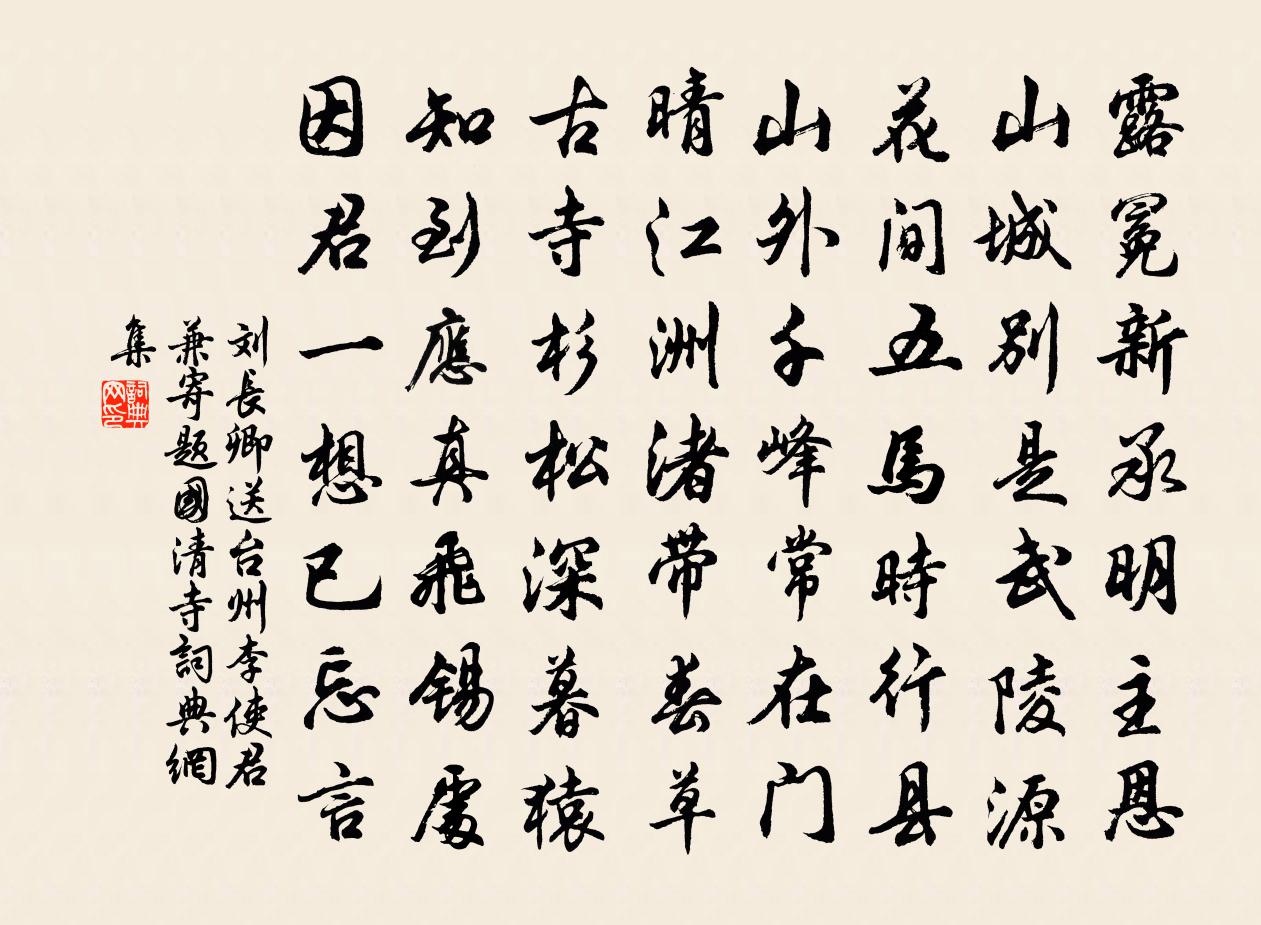 露冕新承明主恩
山城別是武陵源
花間五馬時行县
山外千峰常在门
晴江洲渚帶春草
古寺杉松深暮猿
知到應真飛錫處
因君一想已忘言
刘長卿送台州李使君
兼寄题國清寺詞典網
集
詞典
网印